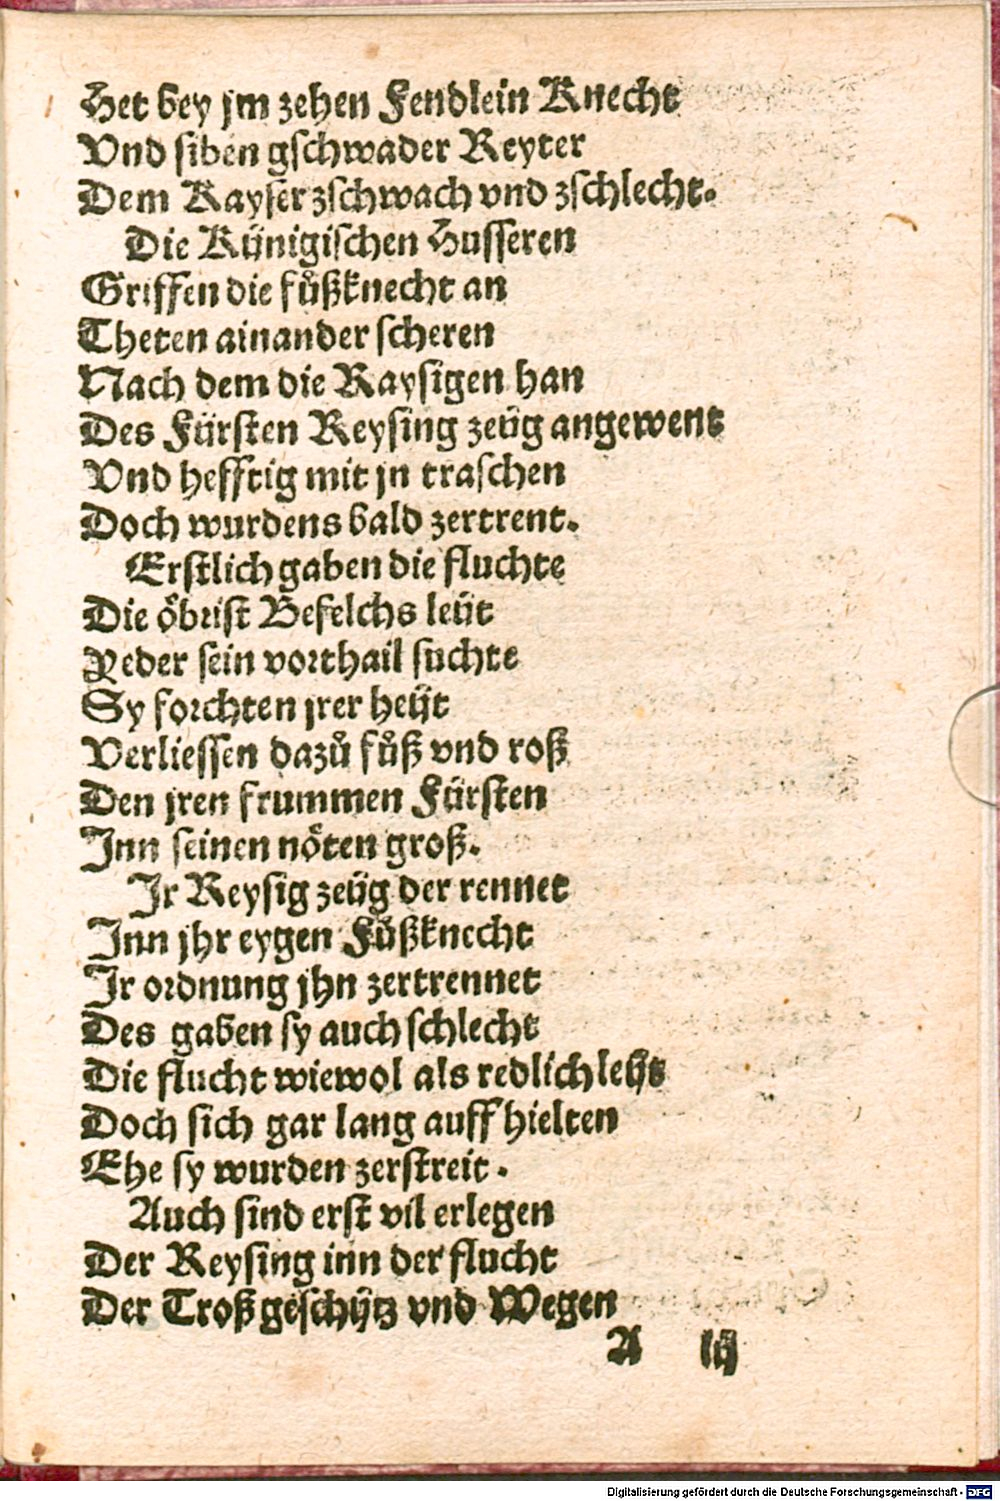 Het bey jm zehen Fendlein Knecht
Vnd siben gschwader Reyter
Dem Kayser zschwach vnd zschlecht.
Die Künigischen Husseren
Griffen die fůßknecht an
Theten ainander scheren
Nach dem die Raysigen han
Des Fürsten Reysing zeüg angewent
Vnd hefftig mit jn traschen
Doch wurdens bald zertrent.
Erstlich gaben die fluchte
Die öbrist Befelchs leüt
Yeder sein vorthail suchte
Sy forchten jrer heüt
Verliessen dazů fůß vnd roß
Den jren frummen Fürsten
Inn seinen nöten groß.
Ir Reysig zeüg der rennet
Inn jhr eygen Fůßknecht
Ir ordnung jhn zertrennet
Des gaben sy auch schlecht
Die flucht wiewol als redlich leüt
Doch sich gar lang auff hielten
Ehe sy wurden zerstreit.
Auch sind erst vil erlegen
Der Reysing inn der flucht
Der Troß geschütz vnd Wegen
A iij
Digitalisierung gefördert durch die Deutsche Forschungsgemeinschaft - DFG